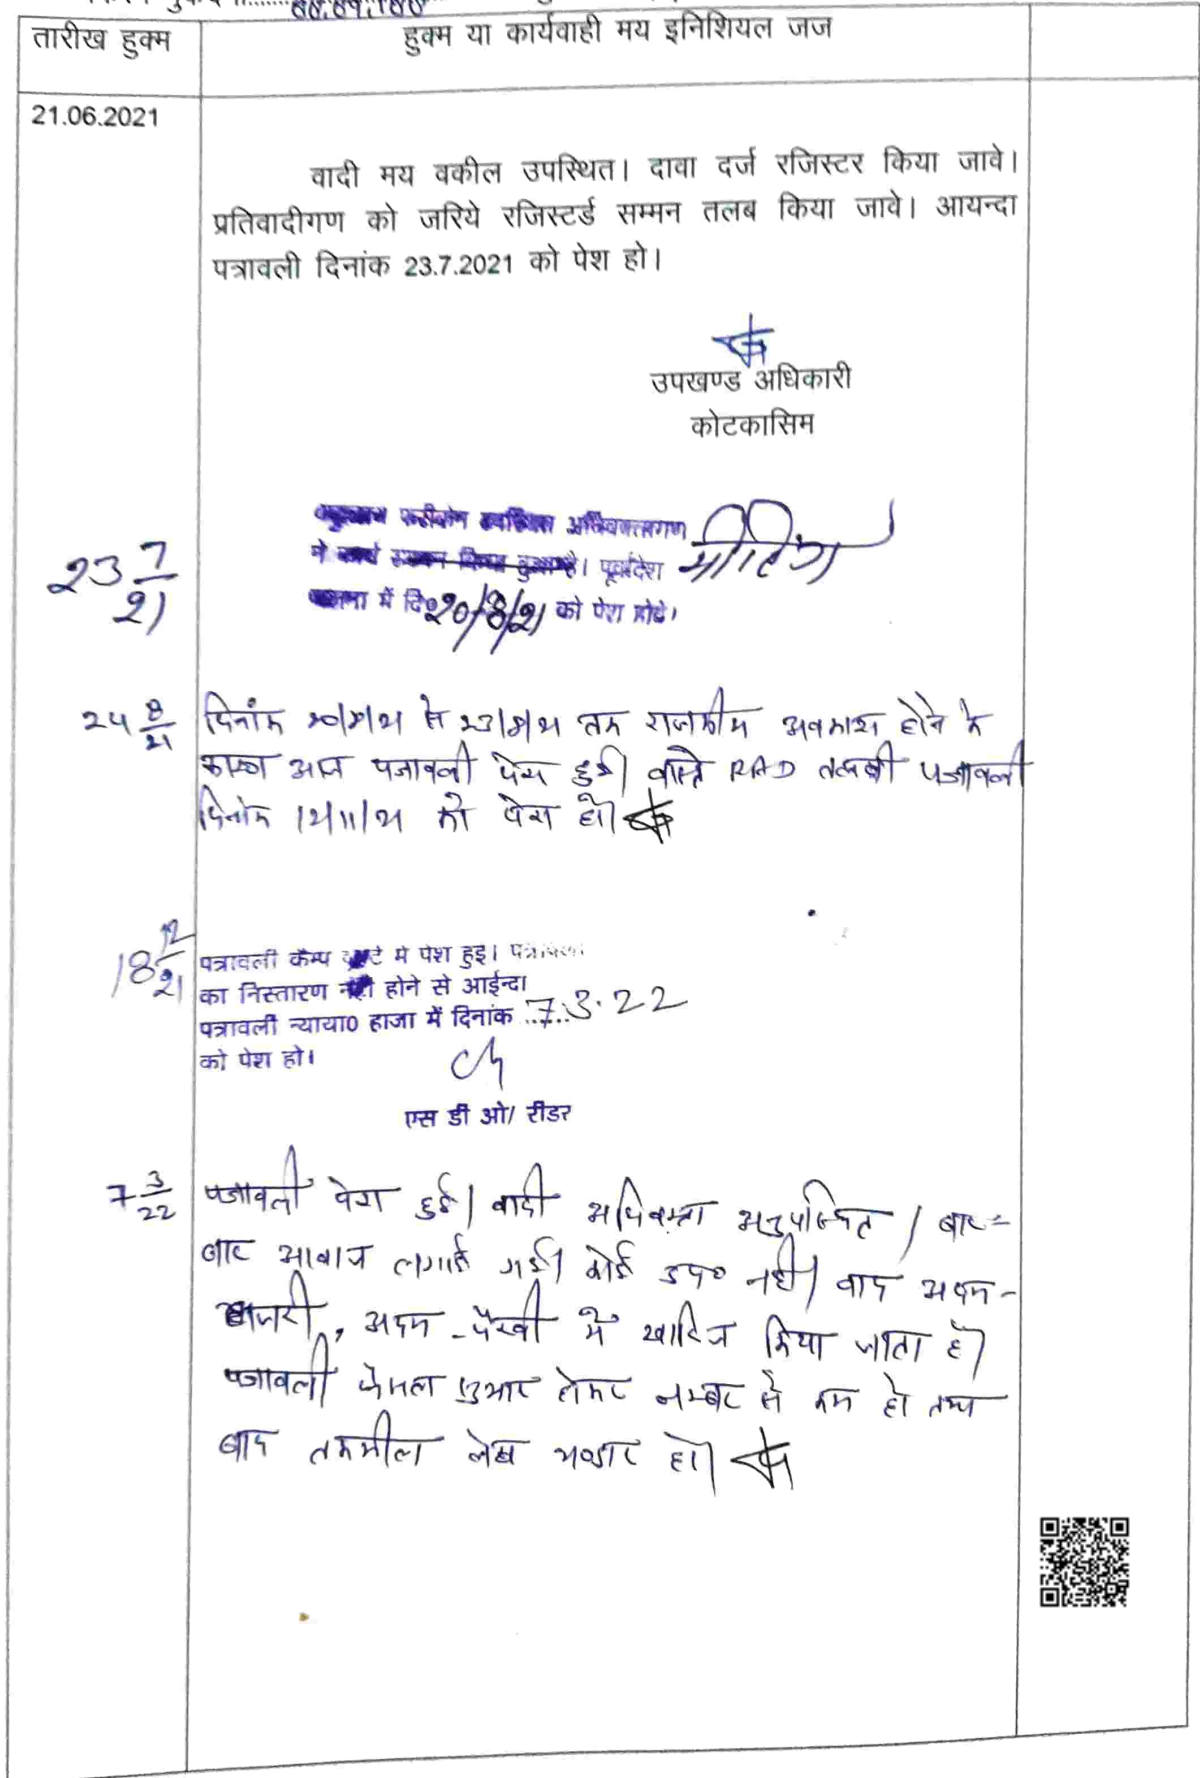 तारीख हुक्म
हुक्म या कार्यवाही मय इनिशियल जज
21.06.2021
वादी मय वकील उपस्थित। दावा दर्ज रजिस्टर किया जावे।
प्रतिवादीगण को जरिये रजिस्टर्ड सम्मन तलब किया जावे। आयन्दा
पत्रावली दिनांक 23.7.2021 को पेश हो।
उपखण्ड अधिकारी
कोटकासिम
23 7/21
अभिवक्तागण
पूर्वादेश
में दि0 20/8/21 को पेश होवे।
24 8/21
दिनांक से तक राजकीय अवकाश होने के
कारण आज पत्रावली पेश हुई। वास्ते RAD तलबी पत्रावली
दिनांक 12/11/21 को पेश हो।
18 12/21
पत्रावली कैम्प में पेश हुई।
का निस्तारण नही होने से आईन्दा
पत्रावली न्याया0 हाजा में दिनांक 7.3.22
को पेश हो।
एस डी ओ/ रीडर
7 3/22
पत्रावली पेश हुई। वादी अधिवक्ता अनुपस्थित। बार=
बार आवाज लगाई गई। कोई उप0 नहीं। वाद अदम-
हाजरी, अदम-पैरवी में खारिज किया जाता है।
पत्रावली फैसला शुमार होकर नम्बर से कम हो
बाद तकमील लेख भण्डार हो।